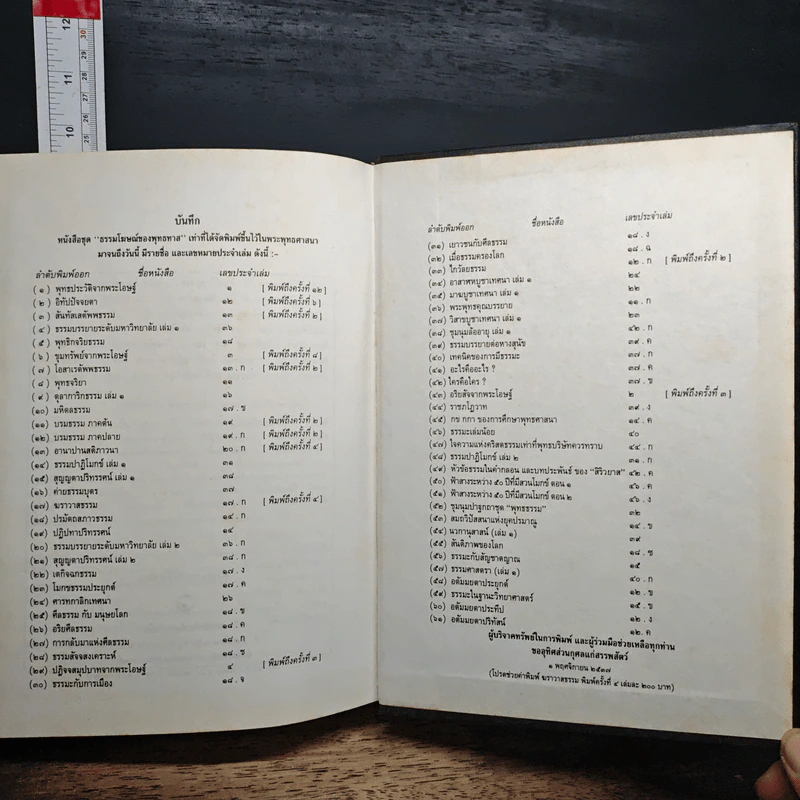 บันทึก
หนังสือชุด "ธรรมโฆษณ์ของพุทธทาส" เท่าที่ได้จัดพิมพ์ขึ้นไว้ในพระพุทธศาสนา
มาจนถึงวันนี้ มีรายชื่อ และเลขหมายประจำเล่ม ดังนี้ :-
ลำดับพิมพ์ออก ชื่อหนังสือ เลขประจำเล่ม
(๑) พุทธประวัติจากพระโอษฐ์ ๑ [ พิมพ์ถึงครั้งที่ ๑๒ ]
(๒) อิทัปปัจจยตา ๑๒ [ พิมพ์ถึงครั้งที่ ๖ ]
(๓) สันทัสเสตัพพธรรม ๑๓ [ พิมพ์ถึงครั้งที่ ๒ ]
(๔) ธรรมบรรยายระดับมหาวิทยาลัย เล่ม ๑ ๓๖
(๕) พุทธิกจริยธรรม ๑๘
(๖) ขุมทรัพย์จากพระโอษฐ์ ๓ [ พิมพ์ถึงครั้งที่ ๘ ]
(๗) โอสาเรตัพพธรรม ๑๓. ก [ พิมพ์ถึงครั้งที่ ๒ ]
(๘) พุทธจริยา ๑๑
(๙) ตุลาการิกธรรม เล่ม ๑ ๑๖
(๑๐) มหิดลธรรม ๑๗. ข
(๑๑) บรมธรรม ภาคต้น ๑๙ [ พิมพ์ถึงครั้งที่ ๒ ]
(๑๒) บรมธรรม ภาคปลาย ๑๙. ก [ พิมพ์ถึงครั้งที่ ๒ ]
(๑๓) อานาปานสติภาวนา ๒๐. ก [ พิมพ์ถึงครั้งที่ ๔ ]
(๑๔) ธรรมปาฏิโมกข์ เล่ม ๑ ๓๑
(๑๕) สุญญตาปริทรรศน์ เล่ม ๑ ๓๘
(๑๖) ค่ายธรรมบุตร ๓๗
(๑๗) ฆราวาสธรรม ๑๗. ก [ พิมพ์ถึงครั้งที่ ๔ ]
(๑๘) ปรมัตถสภาวธรรม ๑๔. ก
(๑๙) ปฏิปทาปริทรรศน์ ๑๔
(๒๐) ธรรมบรรยายระดับมหาวิทยาลัย เล่ม ๒ ๓๖. ก
(๒๑) สุญญตาปริทรรศน์ เล่ม ๒ ๓๘. ก
(๒๒) เตกิจฉกธรรม ๑๗. ง
(๒๓) โมกขธรรมประยุกต์ ๑๗. ค
(๒๔) ศารทกาลิกเทศนา ๒๖
(๒๕) ศีลธรรม กับ มนุษยโลก ๑๘. ข
(๒๖) อริยศีลธรรม ๑๘. ค
(๒๗) การกลับมาแห่งศีลธรรม ๑๘. ก
(๒๘) ธรรมสัจจสงเคราะห์ ๑๘. ช
(๒๙) ปฏิจจสมุปบาทจากพระโอษฐ์ ๔ [ พิมพ์ถึงครั้งที่ ๓ ]
(๓๐) ธรรมะกับการเมือง ๑๘. จ
ลำดับพิมพ์ออก ชื่อหนังสือ เลขประจำเล่ม
(๓๑) เยาวชนกับศีลธรรม ๑๘. ง
(๓๒) เมื่อธรรมครองโลก ๑๘. ฉ
(๓๓) ไกวัลยธรรม ๑๒. ก [ พิมพ์ถึงครั้งที่ ๒ ]
(๓๔) อาสาฬหบูชาเทศนา เล่ม ๑ ๒๔
(๓๕) มาฆบูชาเทศนา เล่ม ๑ ๒๒
(๓๖) พระพุทธคุณบรรยาย ๑๑. ก
(๓๗) วิสาขบูชาเทศนา เล่ม ๑ ๒๓
(๓๘) ชุมนุมล้ออายุ เล่ม ๑ ๔๒. ก
(๓๙) ธรรมบรรยายต่อหางสุนัข ๓๙. ค
(๔๐) เทคนิคของการมีธรรมะ ๓๗. ก
(๔๑) อะไรคืออะไร ? ๓๗. ค
(๔๒) ใครคือใคร ? ๓๗. ข
(๔๓) อริยสัจจากพระโอษฐ์ ๒ [ พิมพ์ถึงครั้งที่ ๓ ]
(๔๔) ราชภโฎวาท ๓๙. ง
(๔๕) กข กกา ของการศึกษาพุทธศาสนา ๑๔. ค
(๔๖) ธรรมะเล่มน้อย ๔๐
(๔๗) ใจความแห่งคริสตธรรมเท่าที่พุทธบริษัทควรทราบ ๔๔. ก
(๔๘) ธรรมปาฏิโมกข์ เล่ม ๒ ๓๑. ก
(๔๙) หัวข้อธรรมในคำกลอน และบทประพันธ์ ของ "สิริวยาส" ๔๒. ค
(๕๐) ฟ้าสางระหว่าง ๕๐ ปีที่มีสวนโมกข์ ตอน ๑ ๔๖. ค
(๕๑) ฟ้าสางระหว่าง ๕๐ ปีที่มีสวนโมกข์ ตอน ๒ ๔๖. ง
(๕๒) ชุมนุมปาฐกถาชุด "พุทธธรรม" ๓๒
(๕๓) สมถวิปัสสนาแห่งยุคปรมาณู ๑๔. ข
(๕๔) นวกานุสาสน์ (เล่ม ๑) ๓๙
(๕๕) สันติภาพของโลก ๑๘. ซ
(๕๖) ธรรมะกับสัญชาตญาณ ๑๕
(๕๗) ธรรมศาสตรา (เล่ม ๑) ๔๐. ก
(๕๘) อตัมมยตาประยุกต์ ๑๒. ข
(๕๙) ธรรมะในฐานะวิทยาศาสตร์ ๑๕. ข
(๖๐) อตัมมยตาประทีป ๑๒. ง
(๖๑) อตัมมยตาปริทัสน์ ๑๒. ค
ผู้บริจาคทรัพย์ในการพิมพ์ และผู้ร่วมมือช่วยเหลือทุกท่าน
ขออุทิศส่วนกุศลแก่สรรพสัตว์
๑ พฤศจิกายน ๒๕๓๗
(โปรดช่วยค่าพิมพ์ ฆราวาสธรรม พิมพ์ครั้งที่ ๔ เล่มละ ๒๐๐ บาท)
12
11
10
30
29
28
27
26
25